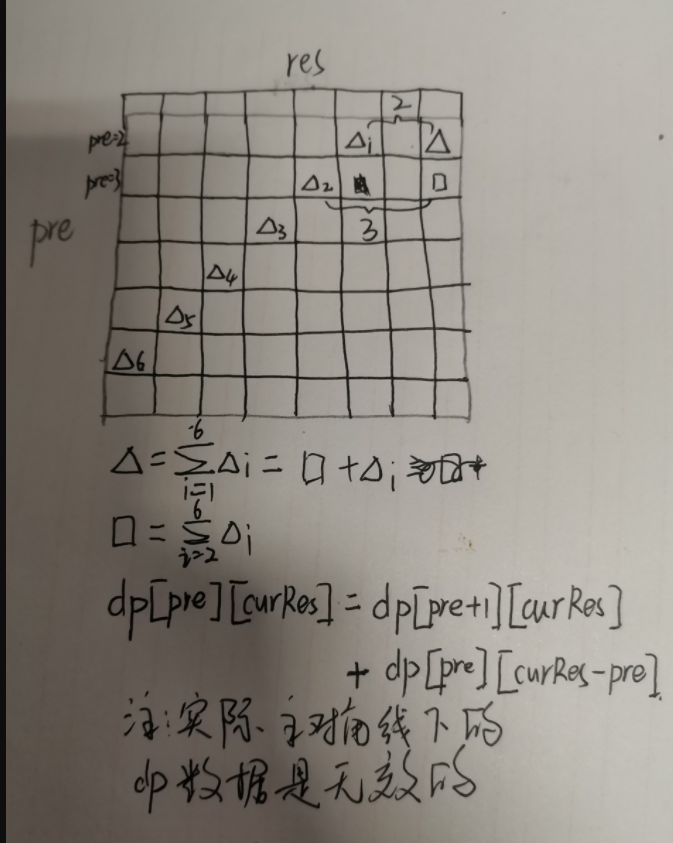 res
2
pre=2 Δ1 Δ
pre=3 Δ2 □
pre Δ3 3
Δ4
Δ5
Δ6
Δ=∑_{i=1}^{6}Δi=□+Δ1
□=∑_{i=2}^{6}Δi
dp[pre][curRes]=dp[pre+1][curRes]
+dp[pre][curRes-pre]
注:实际主对角线下的
dp数据是无效的